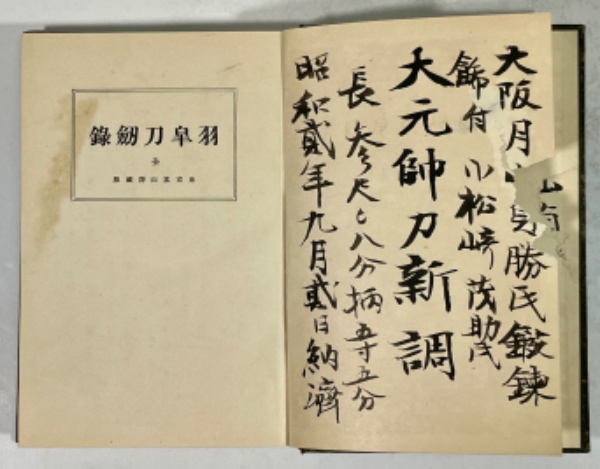 大阪月山貞勝氏鍛錬
飾付 小松崎茂助氏
大元帥刀新調
長 参尺〇八分柄五寸五分
昭和貳年九月貳日納済
羽皐刀剱録
全